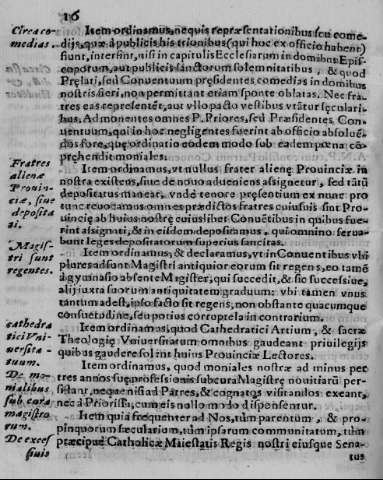 16
Circa comedias.
Item ordinamus, ne quis repræsentationibus seu comedijs, quæ à publicis histrionibus (qui hoc ex officio habent)
fiunt, intersint, nisi in capitulis Ecclesiarum in domibus Episcoporum, aut publicis sanctorum solemnitatibus, & quod
Prelati, seu Conventuum præsidentes comedias in domibus
nostris fieri, non permittant etiam sponte oblatas. Nec fratres eas repræsentêt, aut vllo pacto vestibus vtātur sęcularibus. Admonentes omnes P. Priores, seu Præsidentes Conuentuum, qui in hoc negligentes fuerint ab officio absoluēdos fore, quę ordinatio eodem modo sub eadem pœna cōprehendit moniales.
Fratres alienæ Prouinciæ, siue depositati.
Item ordinamus, vt nullus frater alienę Prouinciæ in
nostra existens, siue de nouo adueniens assignetur, sed tātū
depositatus maneat. vndè tenore præsentium ex nunc pro
tunc reuocamus omnes prædictos fratres cuiusuis sint Prouincię ab huius nostrę cuiuslibet Conuētibus in quibus fuerint assignati, & in eisdem depositamus, qui omnino seruabunt leges depositatorum superius sancitas.
Magistri sunt regentes.
Item ordinamus, & declaramus, vt in Conuentibus vbi
plures adsunt Magistri antiquior eorum sit regens, eo tamē
à gymnasio absente Magister, qui succedit, & sic successiue,
alij iuxta suorum antiquitatem graduum: vbi tamen vnus
tantum adest, ipso facto sit regens, non obstante quacumque
consuetudine, seu potius corruptela in contrarium.
cathedratici Vniuersitatum.
Item ordinamus, quod Cathedratici Artium, & sacræ
Theologię Vniuersitatum omnibus gaudeant priuilegijs
quibus gaudere solent huius Prouinciæ Lectores.
De monialibus sub cura magistrorum.
Item ordinamus, quod moniales nostræ ad minus per
tres annos suę professionis sub cura Magistrę nouitiarū persistant, neque nisi ad Patres, & cognatos visitanilos exeant,
nec à Priorissa, cum eis nullo modo dispensentur.
De excessiuis
Item quia frequenter ad Nos, tum parentum, & propinquorum sæcularium, tum ipsarum communitatum, tum
præcipuè Catholicæ Maiestatis Regis nostri eiusque Senatus